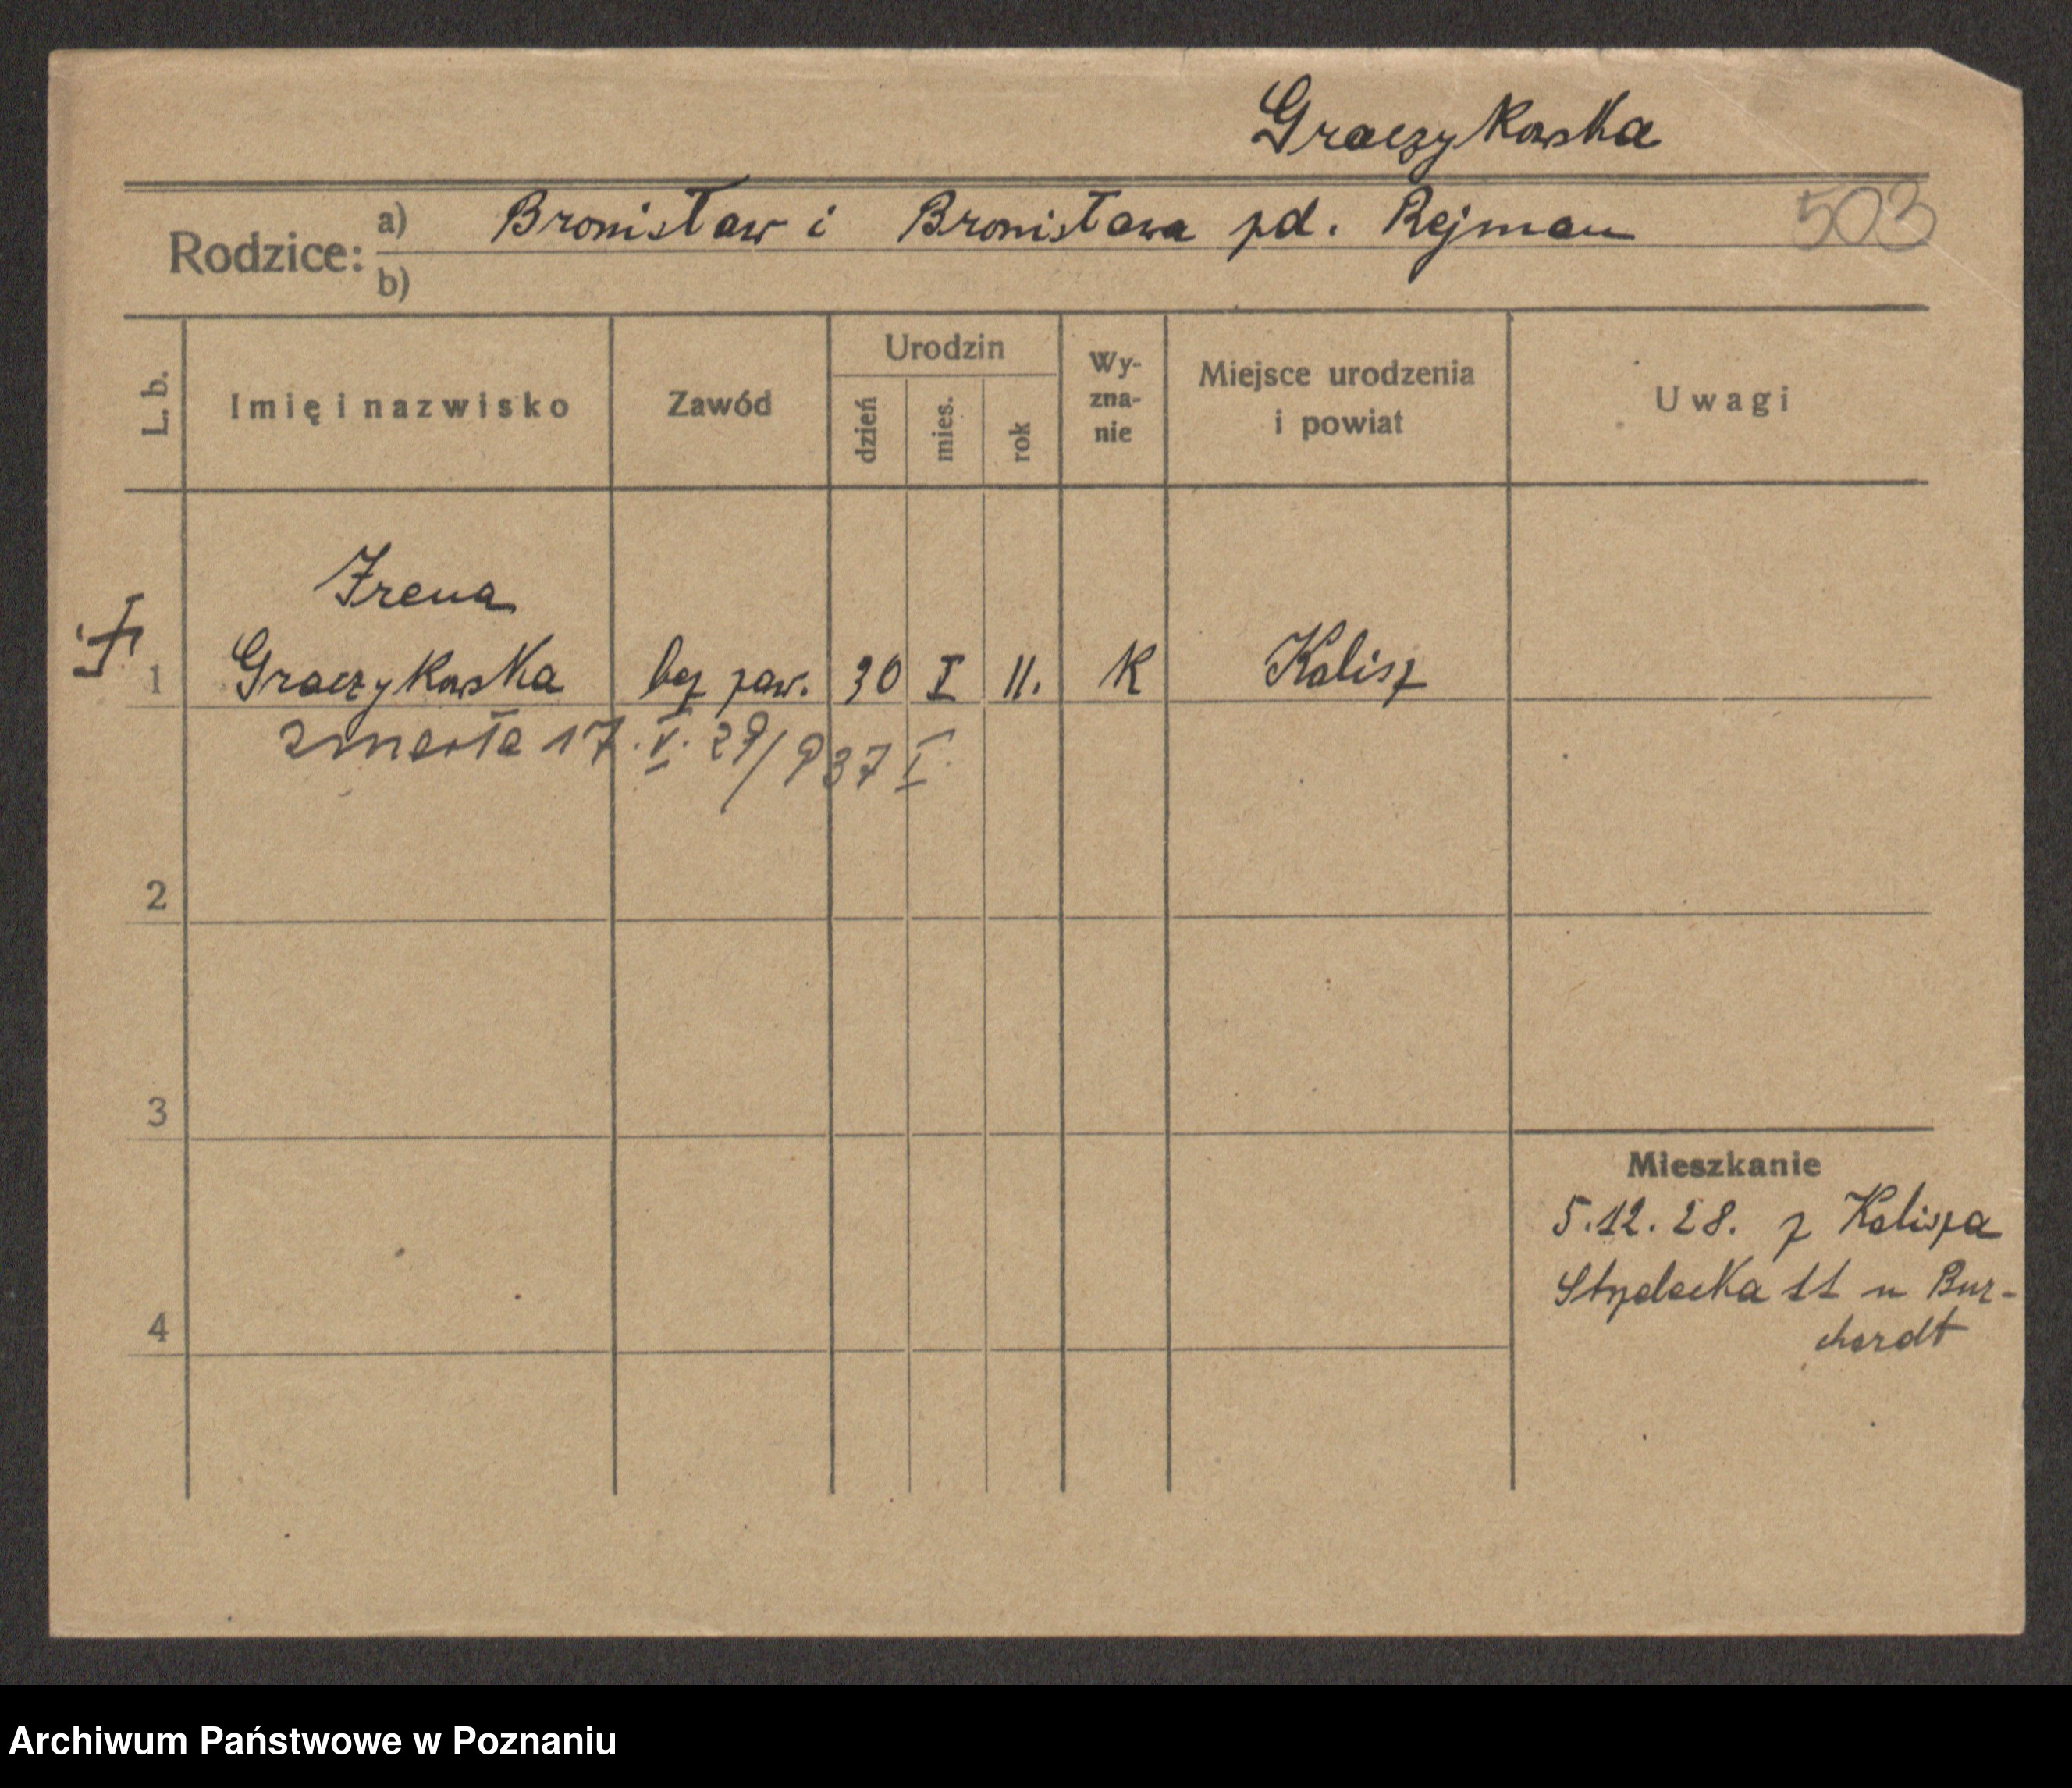 Graczykowska
Rodzice: a) Bronisław i Bronisława zd. Rejman 503
b)
L. b. Imię i nazwisko Zawód Urodzin dzień mies. rok Wy-zna-nie Miejsce urodzenia i powiat Uwagi
Irena
1 Graczykowska bez zaw. 30 I 11. K Kalisz
zmarła 17. V. 29/937 I
2
3
Mieszkanie
5.12.28. z Kalisza
Strzelecka 11 u Bur-
chardt
4
Archiwum Państwowe w Poznaniu